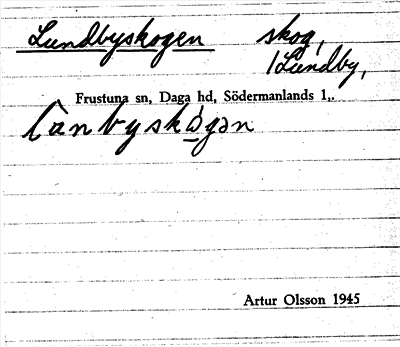 Lundbyskogen skog,
i Lundby,
Frustuna sn, Daga hd, Södermanlands l,.
Artur Olsson 1945